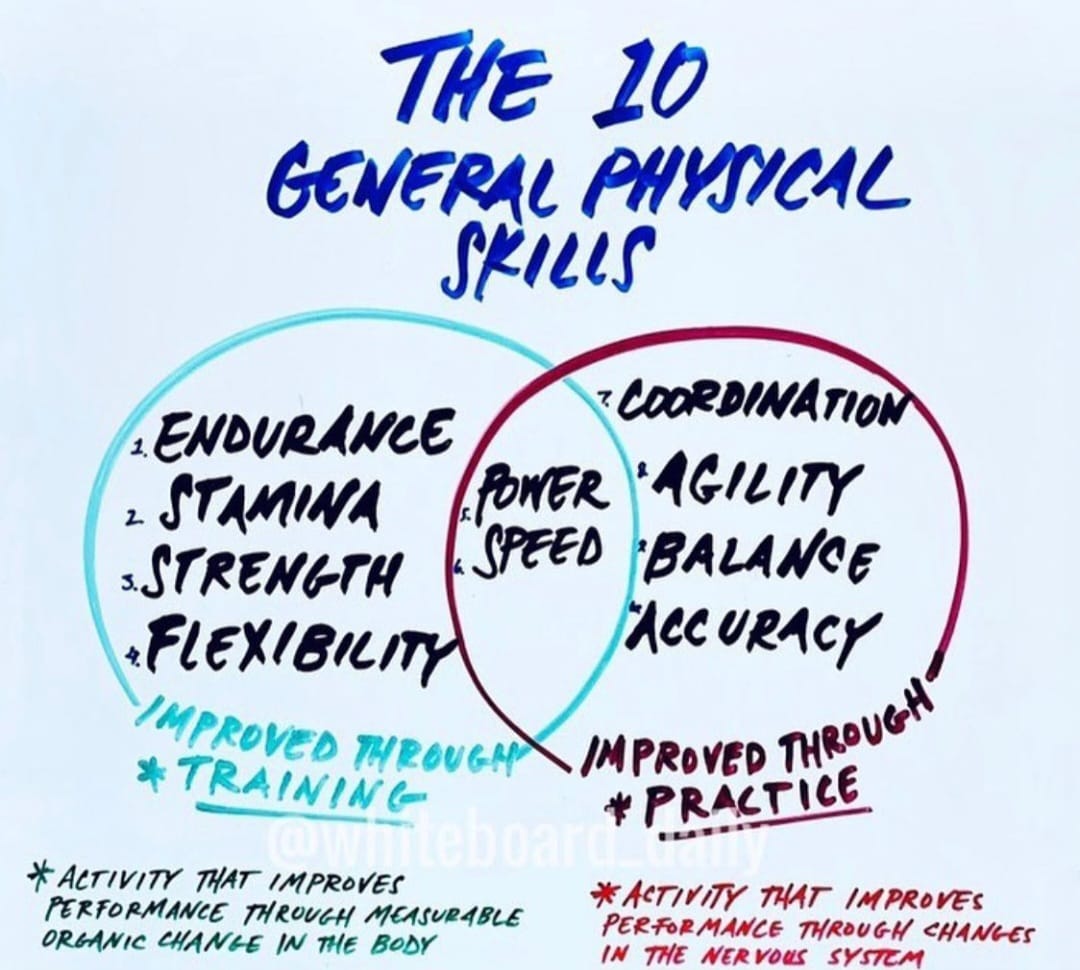 THE 10
GENERAL PHYSICAL
SKILLS
1. ENDURANCE
2. STAMINA
3. STRENGTH
4. FLEXIBILITY
5. POWER
6. SPEED
7. COORDINATION
8. AGILITY
9. BALANCE
10. ACCURACY
IMPROVED THROUGH
* TRAINING
IMPROVED THROUGH
* PRACTICE
@whiteboard_daily
* ACTIVITY THAT IMPROVES
PERFORMANCE THROUGH MEASURABLE
ORGANIC CHANGE IN THE BODY
* ACTIVITY THAT IMPROVES
PERFORMANCE THROUGH CHANGES
IN THE NERVOUS SYSTEM